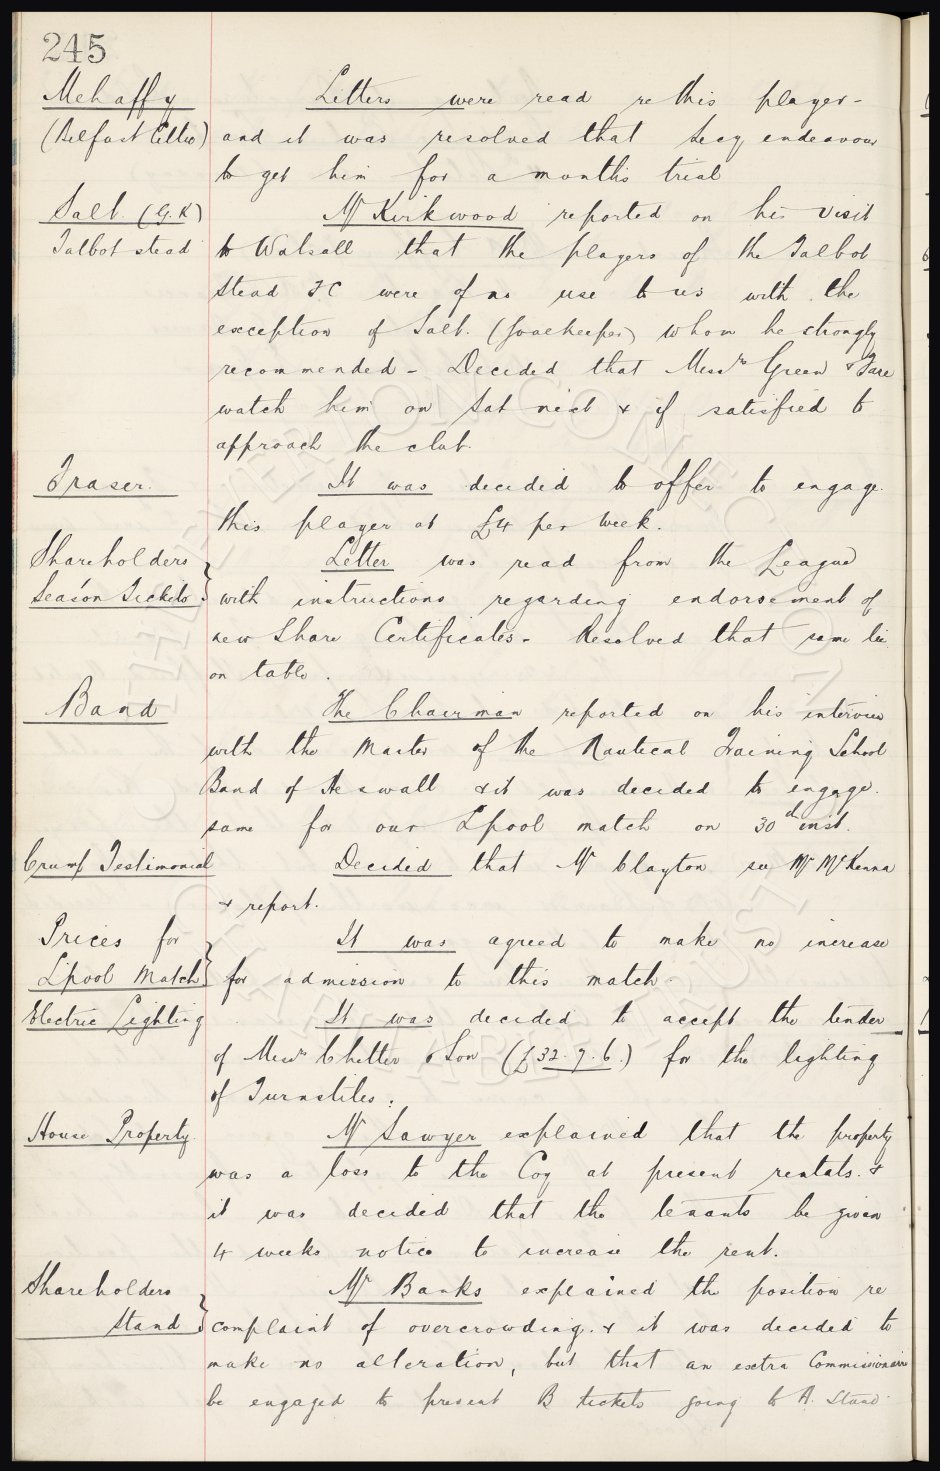 245
Mehaffy Letters were read re this player -
(Belfast Celtic) and it was resolved that Secy endeavour
to get him for a months trial
Salt. (G.K) Mr Kirkwood reported on his visit
Talbot stead to Walsall that the players of the Talbot
Stead FC were of no use to us with the
exception of Salt. (Goalkeeper) whom he strongly
recommended - Decided that Messrs Green &
watch him on Sat next & if satisfied to
approach the club.
Fraser. It was decided to offer to engage
this player at £4 per week.
Shareholders Letter was read from the League
Season Tickets with instructions regarding endorsement of
new Share Certificates - Resolved that same lie
on table.
Band The Chairman reported on his interview
with the Master of the Nautical Training School
Band of Heswall & it was decided to engage
same for our Lpool match on 30th inst.
Crump Testimonial Decided that Mr Clayton see Mr McKenna
& report.
Prices for It was agreed to make no increase
Lpool Match for admission to this match.
Electric Lighting It was decided to accept the tender
of Messrs & Son (£32.7.6.) for the lighting
of Turnstiles.
House Property. Mr Sawyer explained that the property
was a loss to the Coy at present rentals. &
it was decided that the tenants be given
4 weeks notice to increase the rent.
Shareholders Mr Banks explained the position re
Stand complaint of overcrowding. & it was decided to
make no alteration, but that an extra Commissionaire
be engaged to prevent B tickets going to A. Stand